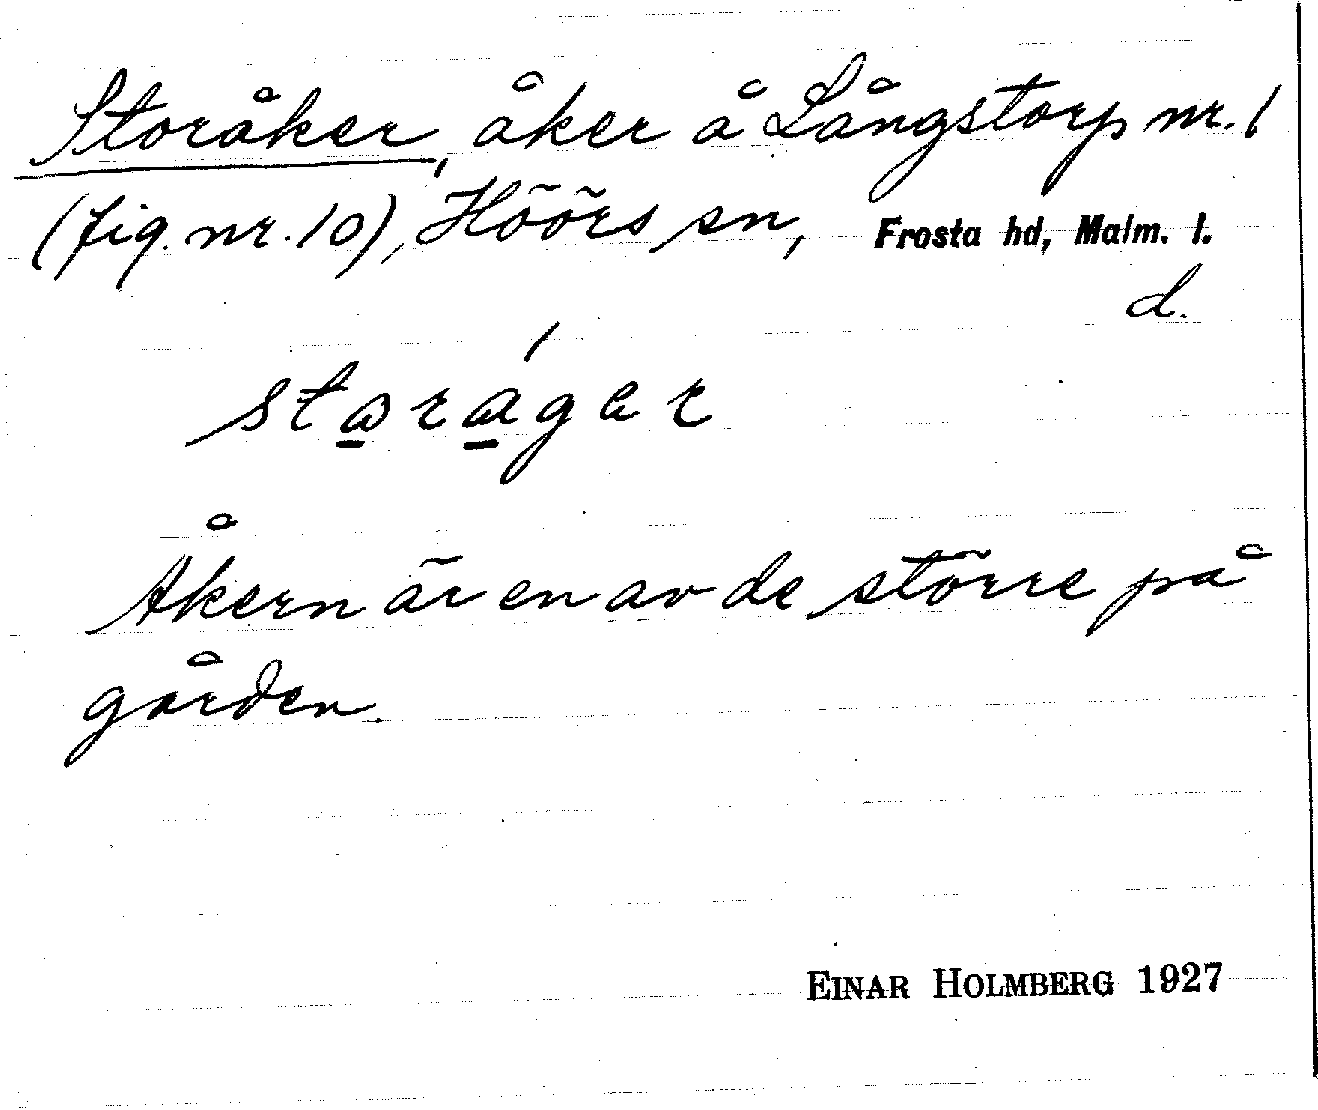 Storåker, åker å Långstorp nr. 1
(fig. nr. 10), Höörs sn, Frosta hd, Malm. l.
d.
storáger
Åkern är en av de större på
gården.
EINAR HOLMBERG 1927